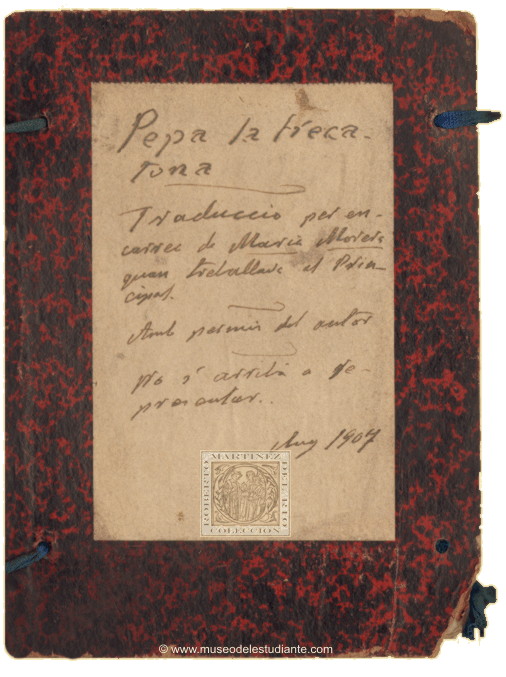 Pepa la freca-
rona
Traduccio per en-
carrec de Maria Morera
quan treballava al Prin-
cipal.
Amb permis del autor
No s' arribà a re-
presentar..
Any 1907
ROBERTO
MARTINEZ
DEL RIO
COLECCION
© www.museodelestudiante.com